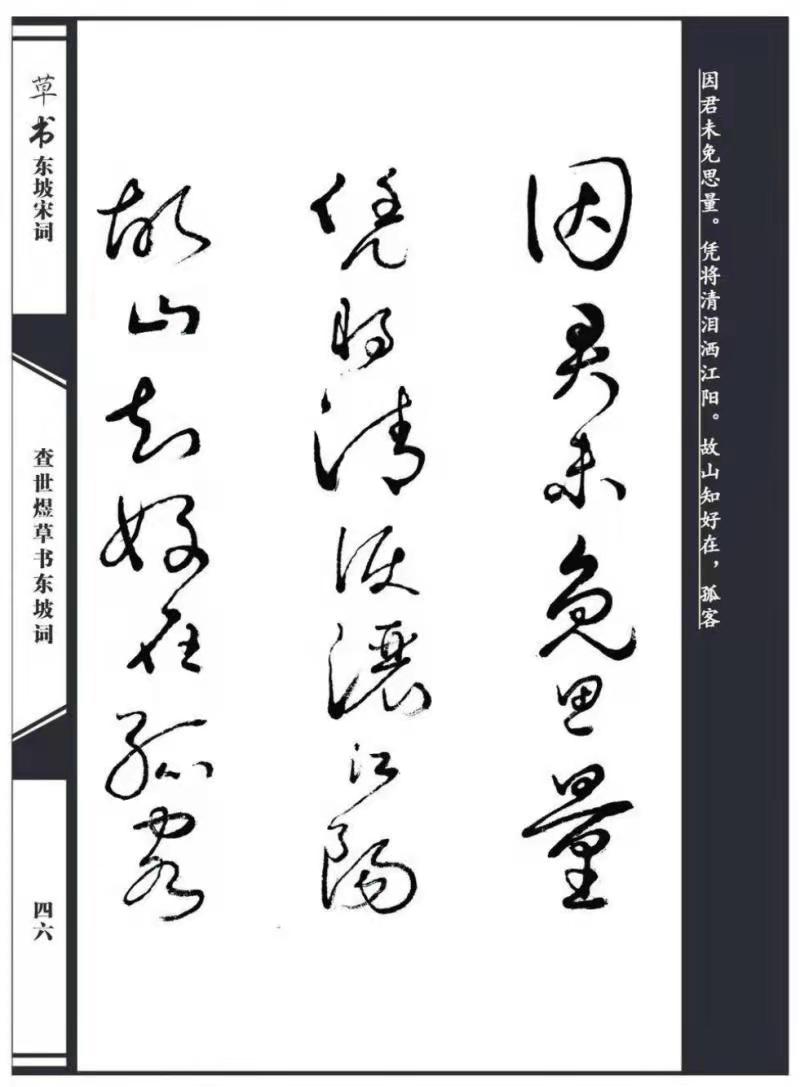 因君未免思量。凭将清泪洒江阳。故山知好在，孤客
因君未免思量
凭将清泪洒江陽
故山知好在孤客
草书东坡宋词
查世煜草书东坡词
四六